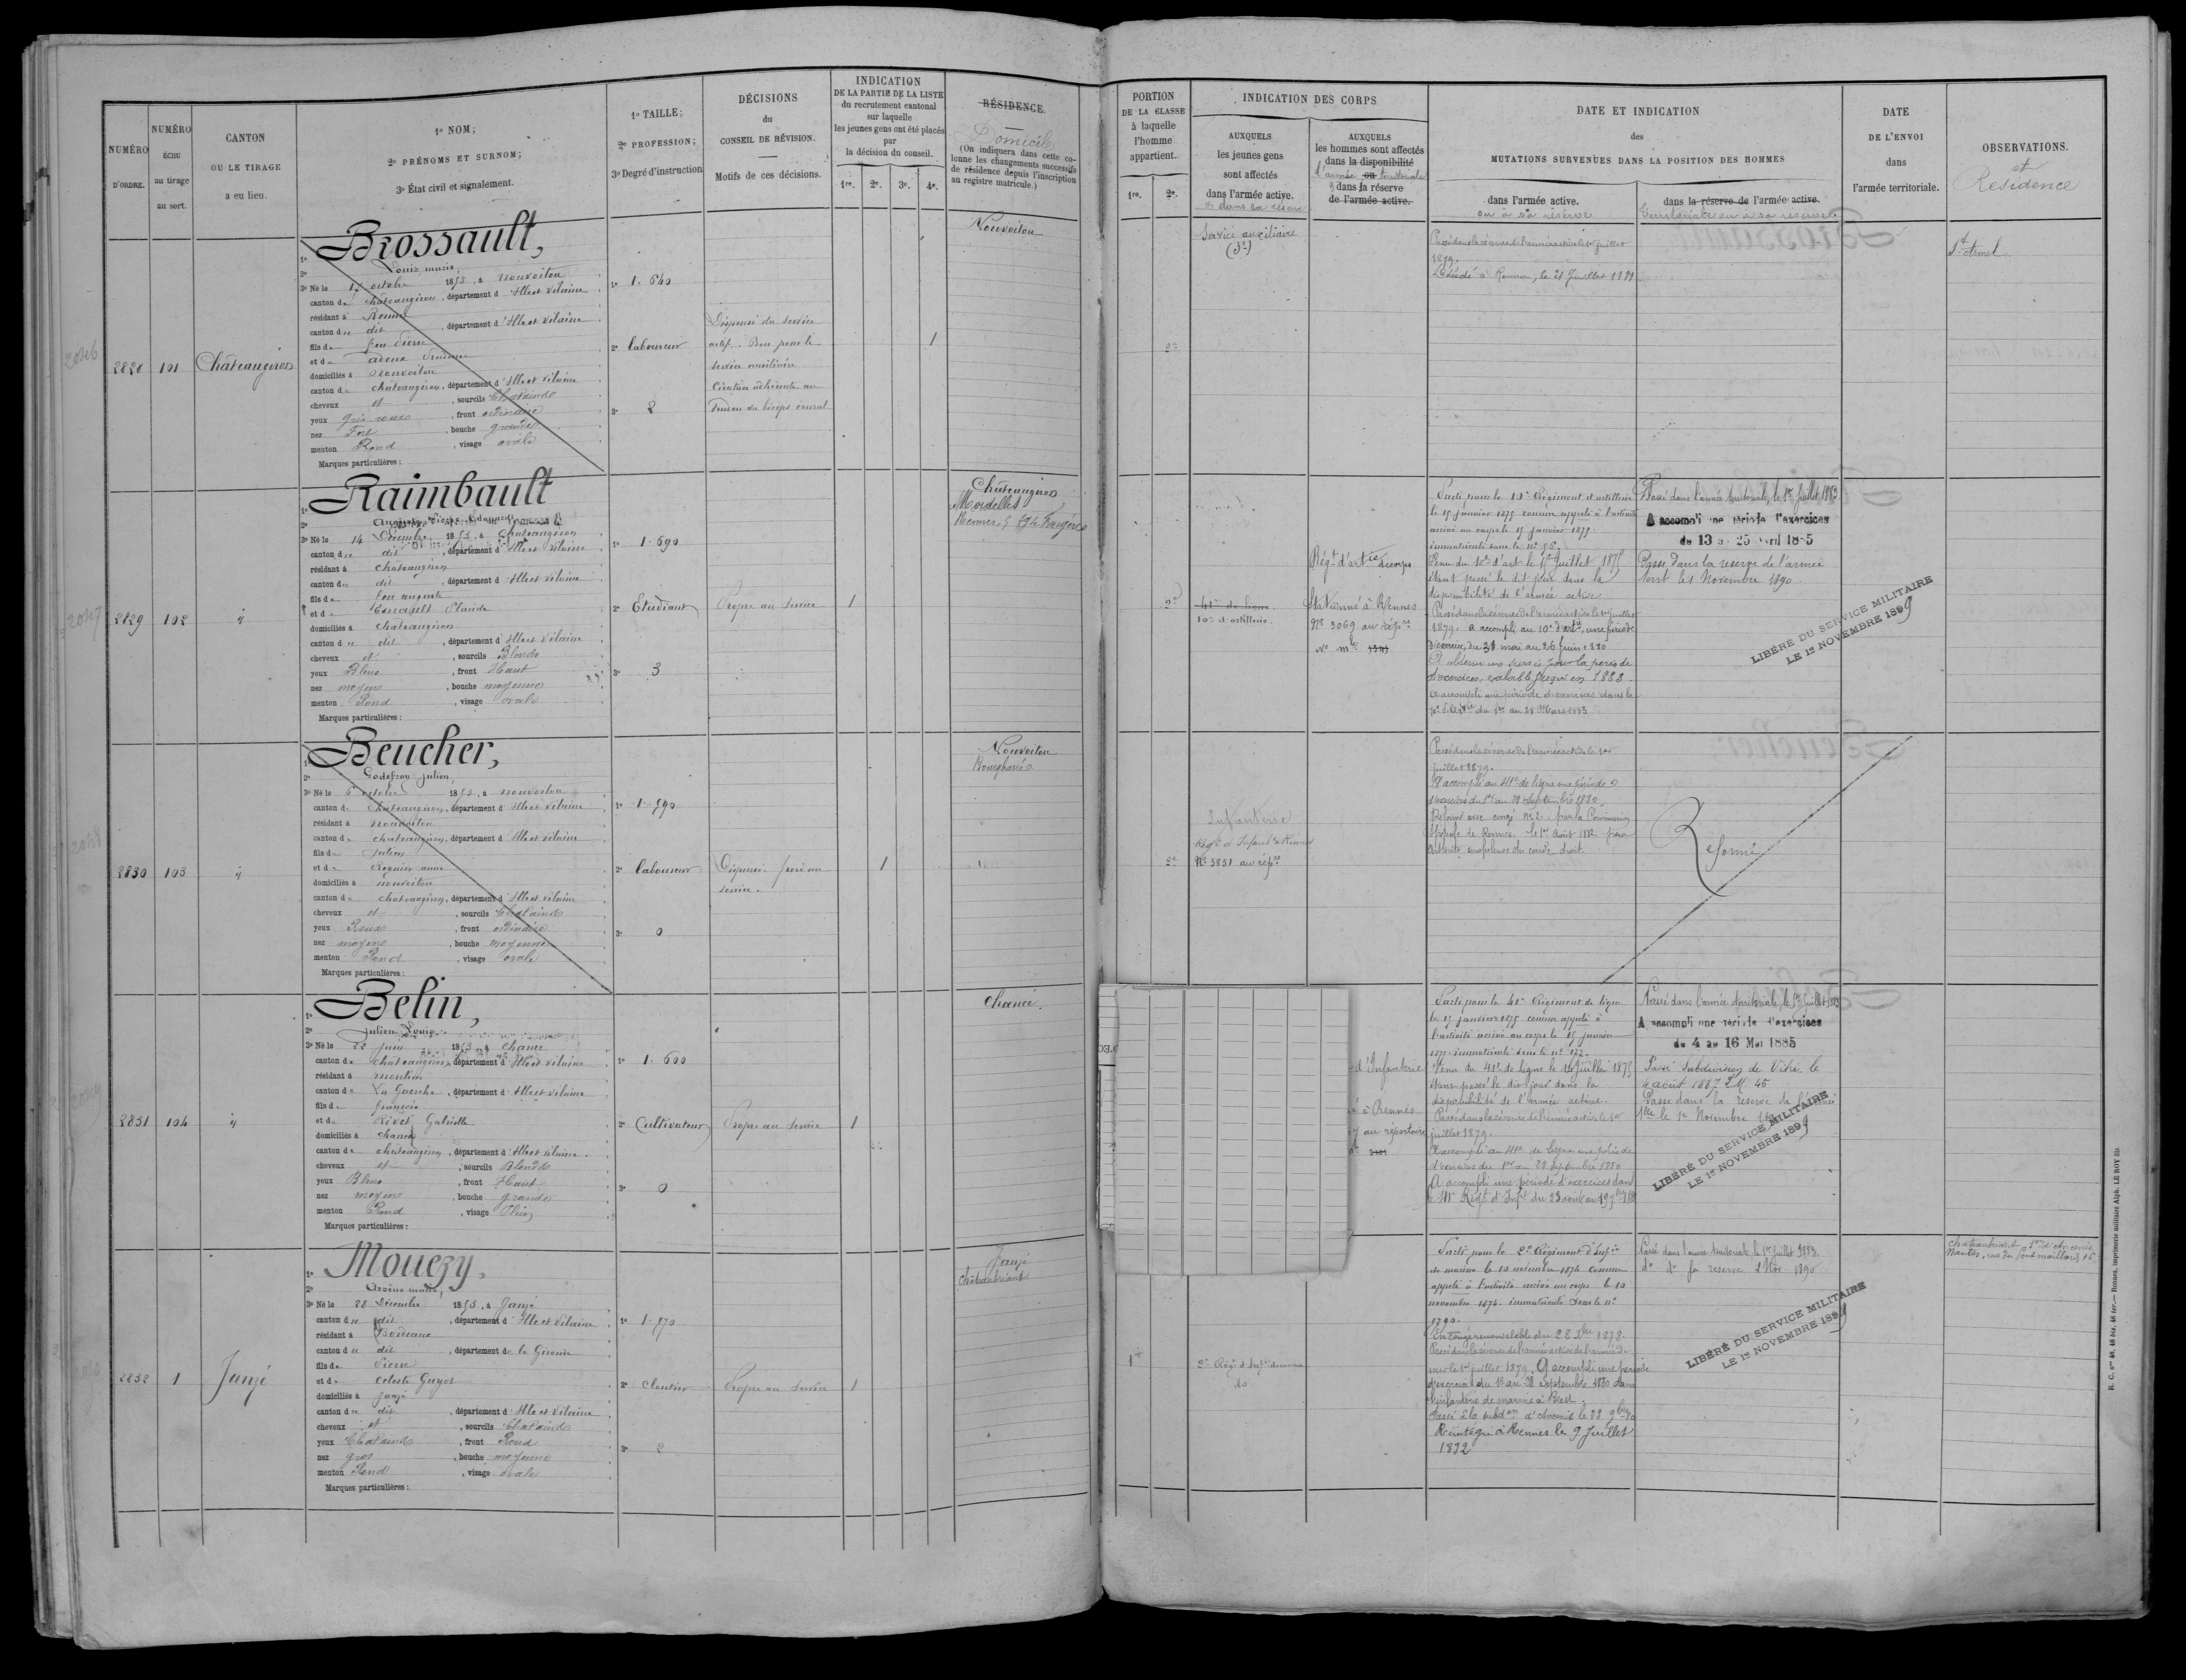 NUMÉRO
D'ORDRE.
NUMÉRO
ÉCHU
au tirage
au sort.
CANTON
OU LE TIRAGE
a eu lieu.
1º NOM;
2º PRÉNOMS ET SURNOM;
3º État civil et signalement.
1º TAILLE;
2º PROFESSION;
3º Degré d'instruction
DÉCISIONS
du
CONSEIL DE RÉVISION.
Motifs de ces décisions.
INDICATION
DE LA PARTIE DE LA LISTE
du recrutement cantonal
sur laquelle
les jeunes gens ont été placés
par
la décision du conseil.
1re. 2e. 3e. 4e.
RÉSIDENCE.
Domicile
(On indiquera dans cette co-
lonne les changements successifs
de résidence depuis l'inscription
au registre matricule.)
PORTION
DE LA CLASSE
à laquelle
l'homme
appartient.
1re. 2e.
INDICATION DES CORPS
AUXQUELS
les jeunes gens
sont affectés
dans l'armée active.
et dans sa réserve
AUXQUELS
les hommes sont affectés
dans la disponibilité
l'armée ou territoriale
dans la réserve
de l'armée active.
DATE ET INDICATION
des
MUTATIONS SURVENUES DANS LA POSITION DES HOMMES
dans l'armée active.
ou à sa réserve
dans la réserve de l'armée active.
territoriale ou à sa réserve
DATE
DE L'ENVOI
dans
l'armée territoriale.
OBSERVATIONS.
et
Résidence
2828 101 Châteaugiron
Brossault,
Louis marie
3º Né le 17 octobre 1853, à nouvoitou
canton de Châteaugiron, département d'Ille et Vilaine
résidant à Rennes
canton du dit, département d'Ille et Vilaine
fils de feu Pierre
et de
domiciliés à nouvoitou
canton de châteaugiron, département d'Ille et Vilaine
cheveux et, sourcils Chatains
yeux gris roux, front ordinaire
nez Fort, bouche grande
menton Rond, visage ovale
Marques particulières:
1º 1.640
2º laboureur
3º 2
Dispensé du service
actif. Bon pour le
service auxiliaire
Cicatrice adhérente au
tendon du biceps crural
1
Nouvoitou
2e
Service auxiliaire
Passé dans la réserve de l'armée active le 1er juillet
1879.
Décédé à Rennes, le 21 Juillet 1881.
St Armel
2829 102 "
Raimbault
Auguste Pierre Edouard
3º Né le 14 Décembre 1853, à Chateaugiron
canton du dit, département d'Ille et Vilaine
résidant à châteaugiron
canton du dit, département d'Ille et Vilaine
fils de feu auguste
et de Esnault Claude
domiciliés à châteaugiron
canton du dit, département d'Ille et Vilaine
cheveux et, sourcils Blonds
yeux Bleus, front Haut
nez moyen, bouche moyenne
menton Rond, visage ovale
Marques particulières:
1º 1.690
2º Etudiant
3º 3
Propre au service
1
Châteaugiron
Mordelles
2e
10e d'artillerie.
Régt d'artie de corps
Stationné à Rennes
Nº 3069 au répre
Parti pour le 10e Régiment d'artillerie
le 15 janvier 1875 comme appelé à l'activité
arrivé au corps le 15 janvier 1875
immatriculé sous le nº 56.
Venu du 10e d'art le 15 Juillet 1875
étant passé le dit jour dans la
disponibilité de l'armée active
Passé dans la réserve de l'armée active le 1er juillet
1879. a accompli au 10e d'artie, une période
d'exercices, du 30 mai au 26 juin 1880
A obtenu un sursis pour la période
d'exercices, valable jusqu'en 1883.
a accompli une période d'exercices dans le
10e d'Artie du 1er au 28 Mars 1883
Passé dans l'armée territoriale, le 1er Juillet 1883
A accompli une période d'exercices
du 13 au 25 Avril 1885
Passé dans la réserve de l'armée
terrt le 1 Novembre 1890
LIBÉRÉ DU SERVICE MILITAIRE
LE 1er NOVEMBRE 1899
2830 103 "
Beucher,
Godefroy Julien,
3º Né le 6 octobre 1853, à nouvoitou
canton de Chateaugiron, département d'Ille et Vilaine
résidant à nouvoitou
canton de chateaugiron, département d'Ille et Vilaine
fils de Julien
et de Régnier anne
domiciliés à nouvoitou
canton de chateaugiron, département d'Ille et Vilaine
cheveux et, sourcils Chatains
yeux Roux, front ordinaire
nez moyen, bouche moyenne
menton Rond, visage ovale
Marques particulières:
1º 1.590
2º laboureur
3º 0
Dispensé. frère au
service.
1
Nouvoitou
Bourgbarré
2e
Infanterie
Régt d'Infantie Rennes
Nº 3831 au répre
Passé dans la réserve de l'armée active le 1er
juillet 1879.
A accompli au 41e de ligne une période
d'exercices du 1er au 28 Septembre 1880.
Réformé avec congé nº 2 par la Commission
Spéciale de Rennes le 1er Août 1882 pour
arthrite du coude droit.
Réformé
2831 104 "
Belin,
Julien Louis
3º Né le 22 juin 1853, à Chancé
canton de Châteaugiron, département d'Ille et Vilaine
résidant à moutiers
canton de La Guerche, département d'Ille et Vilaine
fils de françois
et de Rivet Gabrielle
domiciliés à chancé
canton de chateaugiron, département d'Ille et Vilaine
cheveux et, sourcils Blonds
yeux Bleus, front Haut
nez moyen, bouche grande
menton Rond, visage Plein
Marques particulières:
1º 1.600
2º Cultivateur
3º 0
Propre au service
1
Chancé.
d'Infanterie
à Rennes
au répertoire
Parti pour le 41e Régiment de ligne
le 15 janvier 1875 comme appelé à
l'activité arrivé au corps le 15 janvier
1875 immatriculé sous le nº 122.
Venu du 41e de ligne le 14 Juillet 1875
étant passé le dit jour dans la
disponibilité de l'armée active.
Passé dans la réserve de l'armée active le 1er
juillet 1879.
A accompli au 41e de ligne une période
d'exercices du 1er au 28 Septembre 1880
A accompli une période d'exercices dans
le 41e Régt d'Infie du 23 août au 19
Passé dans l'armée territoriale, le 1er Juillet 1883
A accompli une période d'exercices
du 4 au 16 Mai 1885
Passé Subdivision de Vitré le
4 août 1887 45
Passé dans la réserve de l'armée
le 1er Novembre
LIBÉRÉ DU SERVICE MILITAIRE
LE 1er NOVEMBRE 1899
2832 1 Janzé
Mouezy,
3º Né le 28 Décembre 1853, à Janzé
canton du dit, département d'Ille et Vilaine
résidant à Bordeaux
canton du dit, département de la Gironde
fils de Pierre
et de Celeste Guyot
domiciliés à Janzé
canton du dit, département d'Ille et Vilaine
cheveux et, sourcils Chatains
yeux Chatains, front Rond
nez gros, bouche moyenne
menton Rond, visage ovale
Marques particulières:
1º 1.570
2º cloutier
3º 2
Propre au service
1
Janzé
Châteaubriant
1re
2e Régt d'Infie de marine
do
Parti pour le 2e Régiment d'Infie
de marine le 10 novembre 1874 comme
appelé à l'activité arrivé au corps le 10
novembre 1874. immatriculé sous le nº
1790.
En congé renouvelable du 28 Xbre 1878.
Passé dans la réserve de l'armée active de l'armée de
mer le 1er juillet 1879. A accompli une période
d'exercices du 1er au 28 Septembre 1880 dans
l'infanterie de marine à Brest.
Passé à la subdon d'Ancenis le 22 9bre 80
Réintégré à Rennes le 9 Juillet
1892
Passé dans l'armée territoriale le 1er Juillet 1883
do do sa réserve 1 Nov. 1890
LIBÉRÉ DU SERVICE MILITAIRE
LE 1er NOVEMBRE 1899
Chateaubriant, Son d'Ancenis
Nantes, rue du pont maillard, 16
R. C. nos 48, 48 bis, 48 ter.— Rennes, imprimerie militaire Alph. LE ROY fils